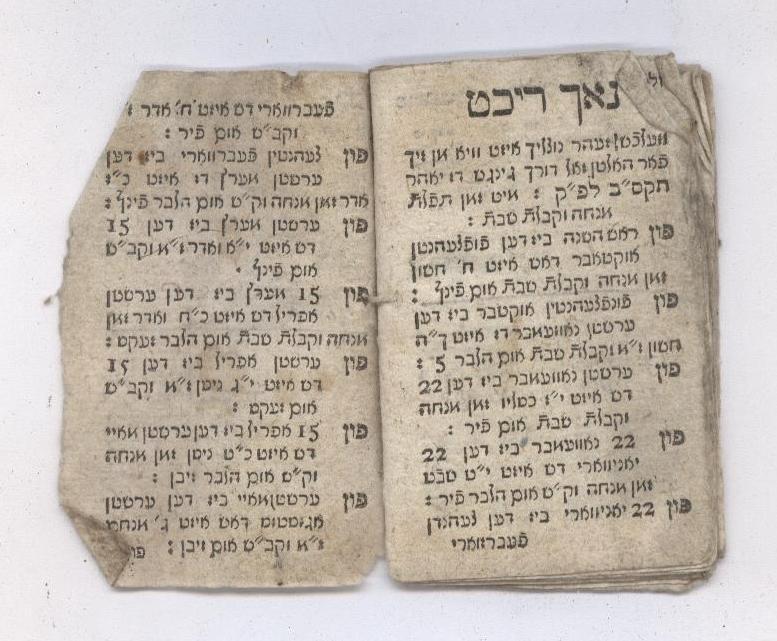 נאך ריכט
וועלכש זעהר נוצליך איזט וויא מן זיך
פאר האלטן זאל דורך גינגט דז יאהר
תקס"ב לפ"ק : מיט זמן תפלת
מנחה וקבלת שבת :
פון ראש השנה ביז דען פופצעהנטן
אוקטאבר דאש איזט ח' חשון
זמן מנחה וקבלת שבת אום פינף :
פון פונפצעהנטין אוקטבר ביז דען
ערשטן נאוועמבר דז איזט ך"ה
חשון ז"מ וקבלת שבת אום הלבר 5 :
פון ערשטן נאוועמבר ביז דען 22
דש איזט י"ז כסליו זמן מנחה
וקבלת שבת אום פיר :
פון 22 נאוועמבר ביז דען 22
יאניווארי דש איזט י"ט שבט
זמן מנחה וק"ש אום הלבר פיר :
פון 22 יאניווארי ביז דען צעהנדן
פעברווארי
פעברווארי דש איזט ח' אדר :
וקב"ש אום פיר :
פון צעהנטין פעברווארי ביז דען
ערשטן מערץ דז איזט כ"ז
אדר זמן מנחה וק"ש אום הלבר פינף :
פון ערשטן מערץ ביז דען 15
דש איזט י"א ואדר ז"מ וקב"ש
אום פינף •
פון 15 מערץ ביז דען ערשטן
אפריל דש איזט כ"ח ואדר זמן
מנחה וקבלת שבת אום הלבר זעקס :
פון ערשטן אפריל ביז דען 15
דש איזט י"ג ניסן ז"מ וקב"ש
אום זעקס :
פון 15 אפריל ביז דען ערשטן מאיי
דש איזט כ"ט ניסן זמן מנחה
וק"ש אום הלבר זיבן :
פון ערשטן מאיי ביז דען ערשטן
אגוסטוס דאש איזט ג' מנחם
ז"מ וקב"ש אום זיבן :
פון